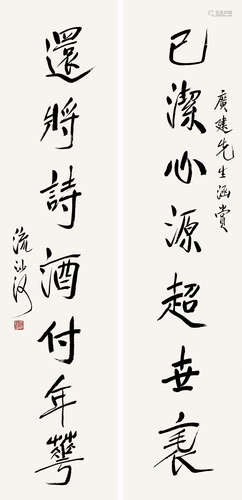 廣建先生涵賞
已潔心源超世
還將詩酒付年華
流沙河